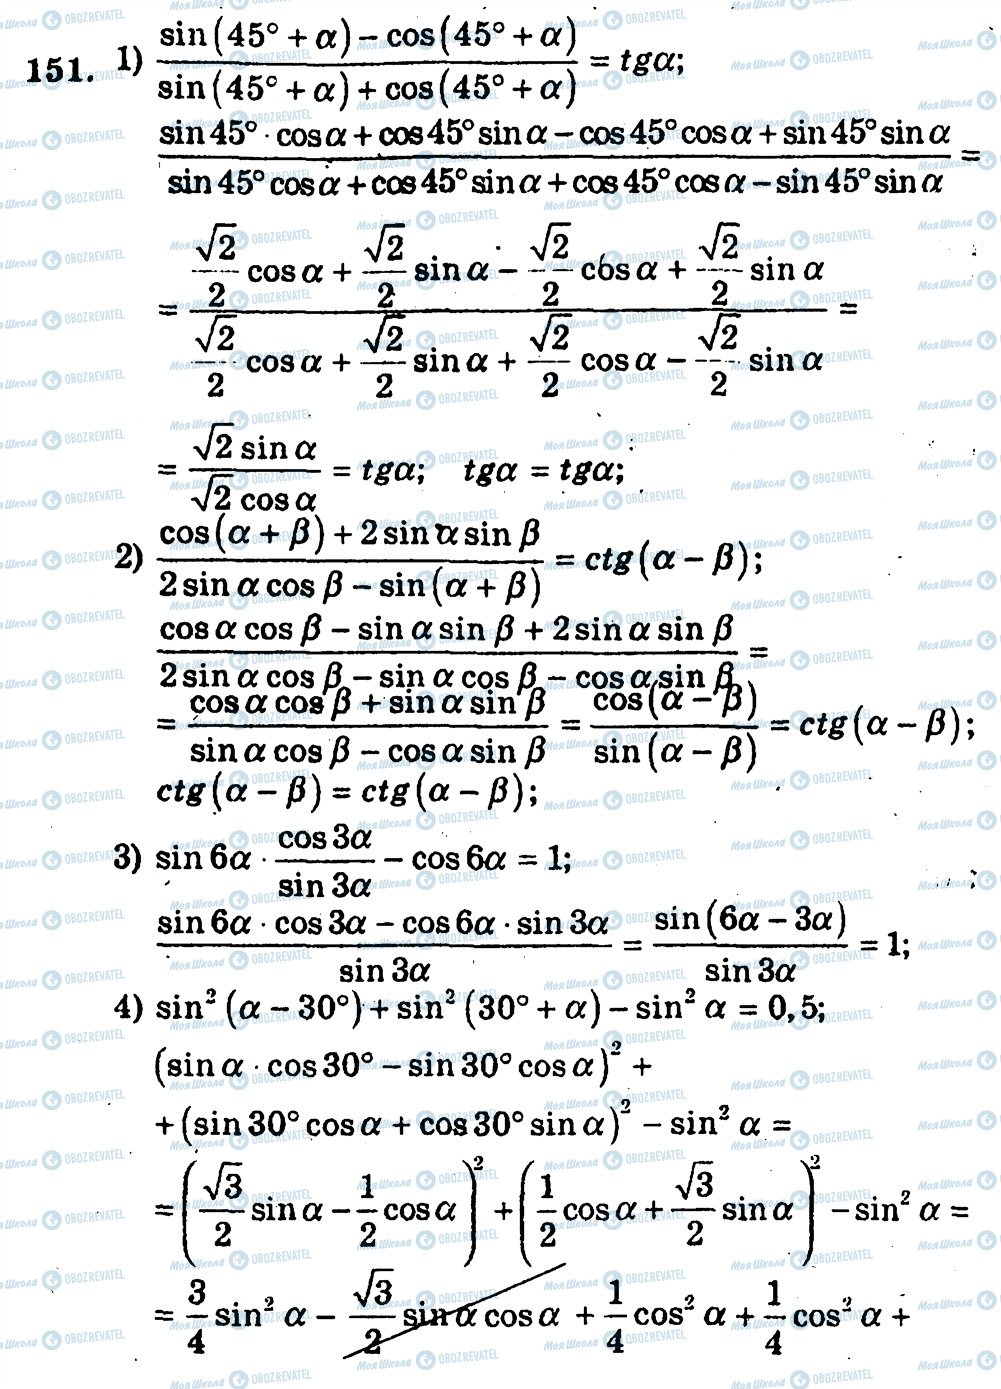 151. 1) (sin(45° + α) − cos(45° + α)) / (sin(45° + α) + cos(45° + α)) = tgα;
(sin 45° · cos α + cos 45° sin α − cos 45° cos α + sin 45° sin α) / (sin 45° cos α + cos 45° sin α + cos 45° cos α − sin 45° sin α) =
= (√2/2 cos α + √2/2 sin α − √2/2 cos α + √2/2 sin α) / (√2/2 cos α + √2/2 sin α + √2/2 cos α − √2/2 sin α) =
= (√2 sin α) / (√2 cos α) = tgα; tgα = tgα;
2) (cos(α + β) + 2 sin α sin β) / (2 sin α cos β − sin(α + β)) = ctg(α − β);
(cos α cos β − sin α sin β + 2 sin α sin β) / (2 sin α cos β − sin α cos β − cos α sin β) =
= (cos α cos β + sin α sin β) / (sin α cos β − cos α sin β) = cos(α − β) / sin(α − β) = ctg(α − β);
ctg(α − β) = ctg(α − β);
3) sin 6α · cos 3α / sin 3α − cos 6α = 1;
(sin 6α · cos 3α − cos 6α · sin 3α) / sin 3α = sin(6α − 3α) / sin 3α = 1;
4) sin² (α − 30°) + sin² (30° + α) − sin² α = 0,5;
(sin α · cos 30° − sin 30° cos α)² +
+ (sin 30° cos α + cos 30° sin α)² − sin² α =
= (√3/2 sin α − 1/2 cos α)² + (1/2 cos α + √3/2 sin α)² − sin² α =
= 3/4 sin² α − √3/2 sin α cos α + 1/4 cos² α + 1/4 cos² α +